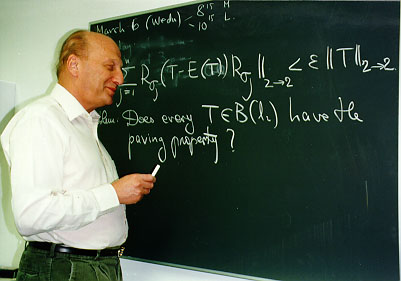 March 6 (Wedn) 8¹⁵ M
10¹⁵ L.
∑ⱼ₌₁ⁿ R_σⱼ (T-E(T)) R_σⱼ ‖₂→₂ < ε ‖T‖₂→₂.
Does every T∈B(l₂) have the
paving property ?